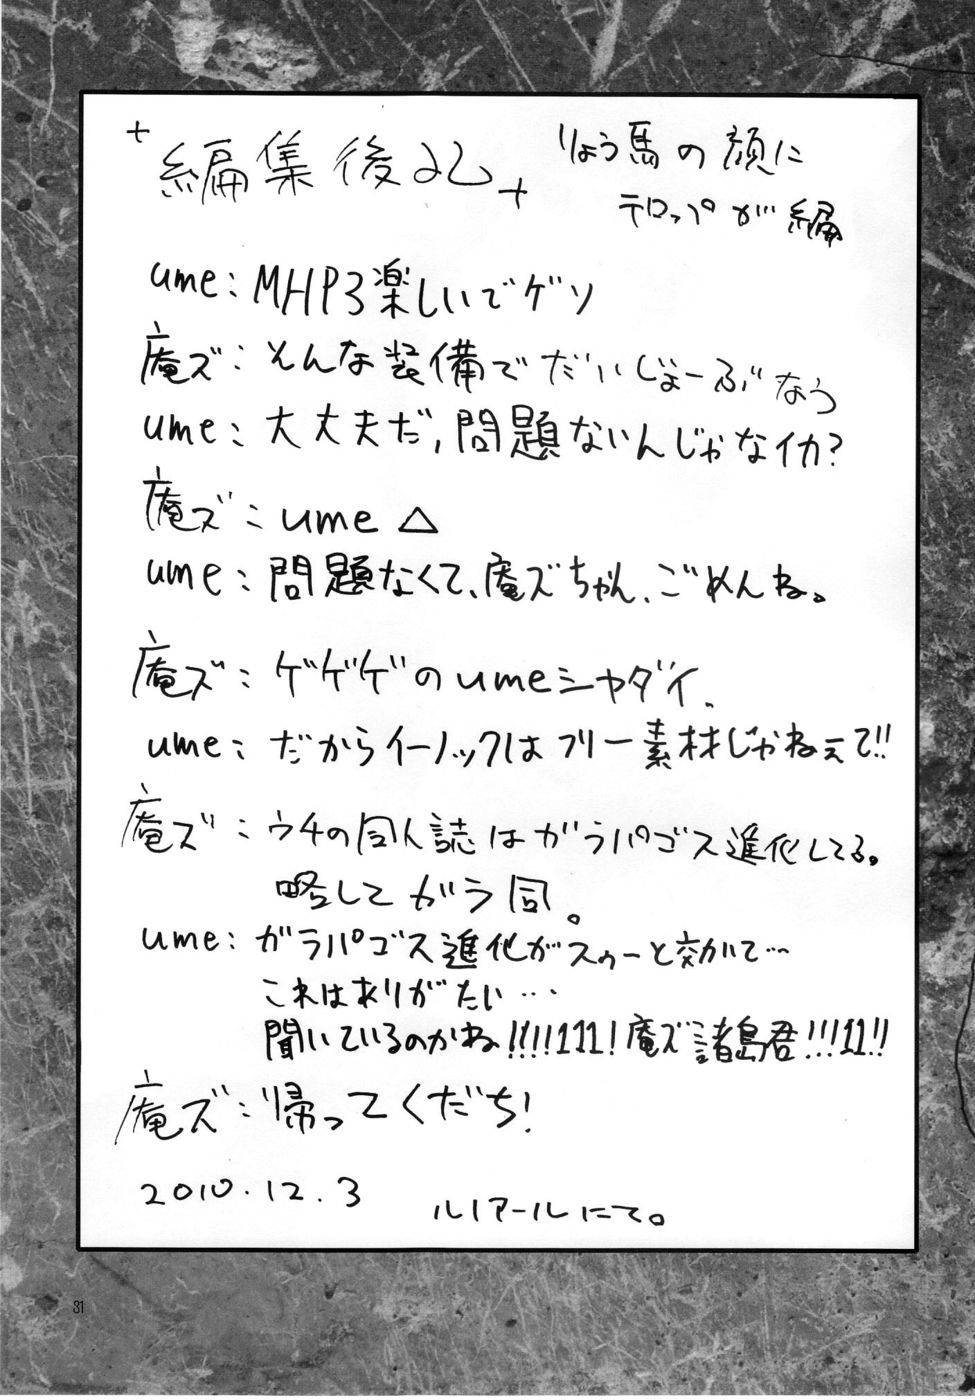 +編集後記+
りょう馬の顔に
テロップが編
ume:MHP3楽しいでゲソ
庵ズ:そんな装備でだいじょーぶなう
ume:大丈夫だ,問題ないんじゃなイカ?
庵ズ:ume△
ume:問題なくて、庵ズちゃん、ごめんね。
庵ズ:ゲゲゲのumeシャダイ、
ume:だからイーノックはフリー素材じゃねぇて!!
庵ズ:ウチの同人誌はガラパゴス進化してる。
略してガラ同。
ume:ガラパゴス進化がスゥーと効いて…
これはありがたい…
聞いているのかね!!!!111!庵ズ諸島君!!!11!!
庵ズ:帰ってくだち!
2010.12.3
ルノアールにて。
31